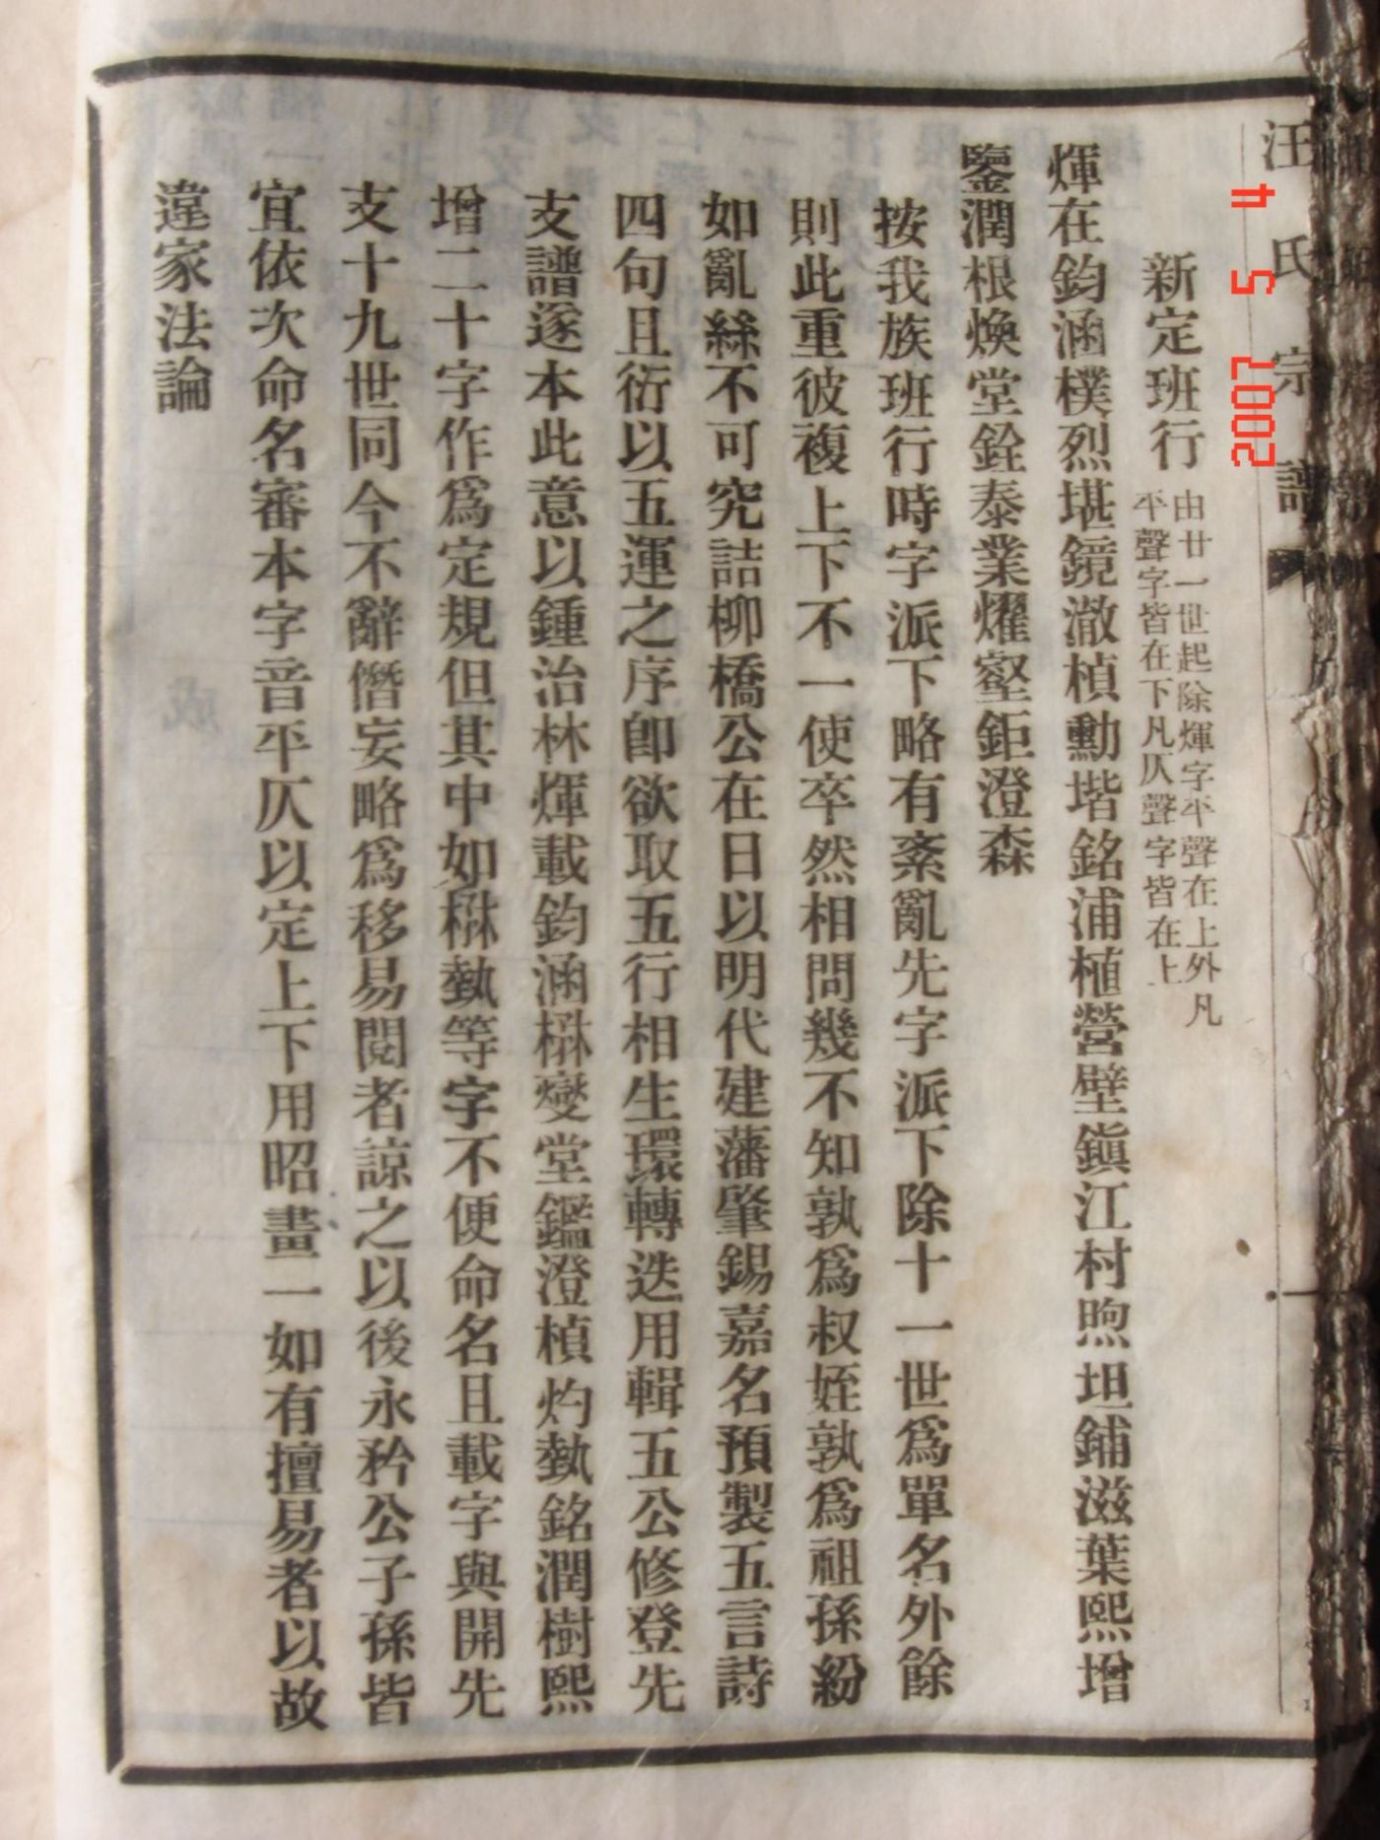 汪氏宗譜
新定班行
由廿一世起除煇字平聲在上外凡
平聲字皆在下凡仄聲字皆在上
煇在鈞涵樸烈堪鏡澈楨勳堦銘浦植營壁鎭江村煦坦鋪滋葉熙增
鑒潤根煥堂銓泰業燿壑鉅澄森
按我族班行時字派下略有紊亂先字派下除十一世爲單名外餘
則此重彼複上下不一使卒然相問幾不知孰爲叔姪孰爲祖孫紛
如亂絲不可究詰柳橋公在日以明代建藩肇錫嘉名預製五言詩
四句且衍以五運之序卽欲取五行相生環轉迭用輯五公修登先
支譜遂本此意以鍾治林煇載鈞涵楙燮堂鑑澄楨灼埶銘潤樹熙
增二十字作爲定規但其中如楙埶等字不便命名且載字與開先
支十九世同今不辭僭妄略爲移易閱者諒之以後永矜公子孫皆
宜依次命名審本字音平仄以定上下用昭畫一如有擅易者以故
違家法論
2007 5 4